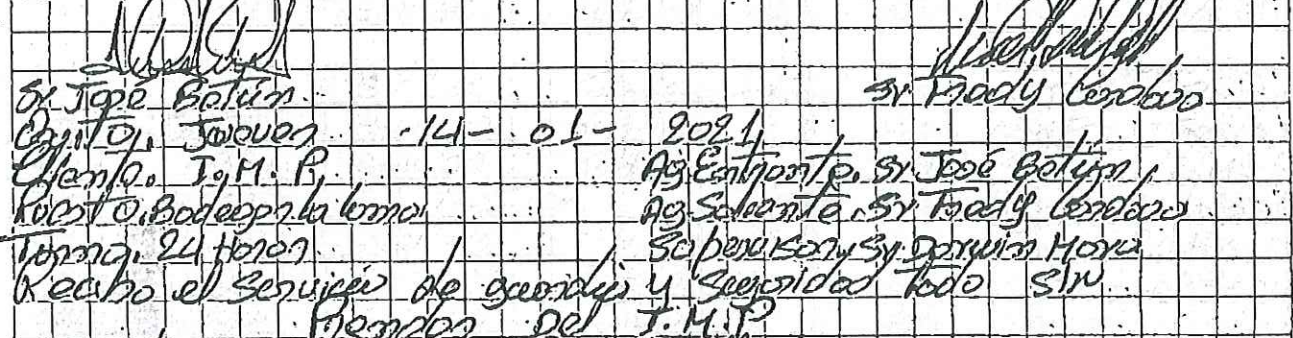 Sr José Botún Sr Fredy Cordova
Quito, Jueves -14- 01- 2021
Cliente. I.M.P. Ag Entrante. Sr José Botún
Puesto. Bodega la loma Ag Saliente. Sr Fredy Cordova
Turno. 24 Horas Supervisor, Sr Darwin Mora
Recibo el Servicio de guardia y Seguridad todo sin
del I.M.P